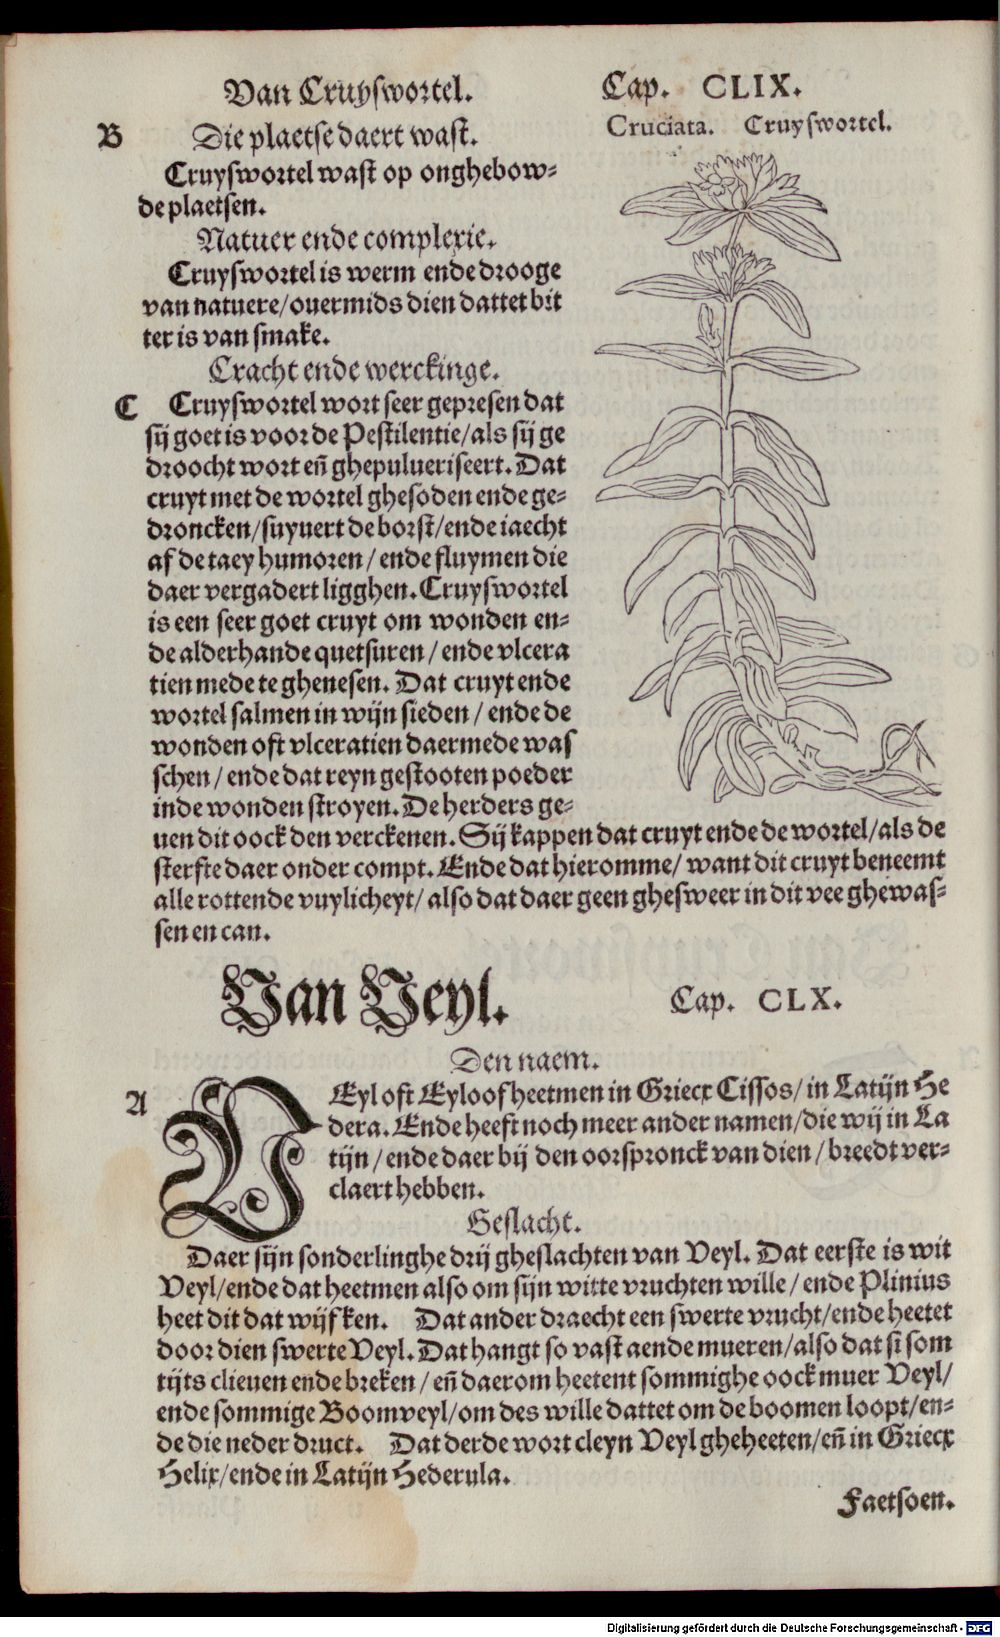 Van Cruyswortel.
Cap. CLIX.
Cruciata. Cruyswortel.
B Die plaetse daert wast.
Cruyswortel wast op onghebow-
de plaetsen.
Natuer ende complexie.
Cruyswortel is werm ende drooge
van natuere/ouermids dien dattet bit
ter is van smake.
Cracht ende werckinge.
C Cruyswortel wort seer gepresen dat
sij goet is voor de Pestilentie/als sij ge
droocht wort eñ ghepulueriseert. Dat
cruyt met de wortel ghesoden ende ge-
droncken/suyuert de borst/ende iaecht
af de taey humoren/ende fluymen die
daer vergadert ligghen. Cruyswortel
is een seer goet cruyt om wonden en-
de alderhande quetsuren/ende vlcera
tien mede te ghenesen. Dat cruyt ende
wortel salmen in wijn sieden/ende de
wonden oft vlceratien daermede was
schen/ende dat reyn gestooten poeder
inde wonden stroyen. De herders ge-
uen dit oock den verckenen. Sij kappen dat cruyt ende de wortel/als de
sterfte daer onder compt. Ende dat hieromme/want dit cruyt beneemt
alle rottende vuylicheyt/also dat daer geen ghesweer in dit vee ghewas-
sen en can.
Van Veyl.
Cap. CLX.
Den naem.
A VEyl oft Eyloof heetmen in Griecx Cissos/in Latijn He
dera. Ende heeft noch meer ander namen/die wij in La
tijn/ende daer bij den oorspronck van dien/breedt ver-
claert hebben.
Geslacht.
Daer sijn sonderlinghe drij gheslachten van Veyl. Dat eerste is wit
Veyl/ende dat heetmen also om sijn witte vruchten wille/ende Plinius
heet dit dat wijfken. Dat ander draecht een swerte vrucht/ende heetet
door dien swerte Veyl. Dat hangt so vast aende mueren/also dat si som
tijts clieuen ende breken/eñ daerom heetent sommighe oock muer Veyl/
ende sommige Boomveyl/om des wille dattet om de boomen loopt/en-
de die neder druct. Dat derde wort cleyn Veyl gheheeten/eñ in Griecx
Helix/ende in Latijn Hederula.
Faetsoen.
Digitalisierung gefördert durch die Deutsche Forschungsgemeinschaft - DFG